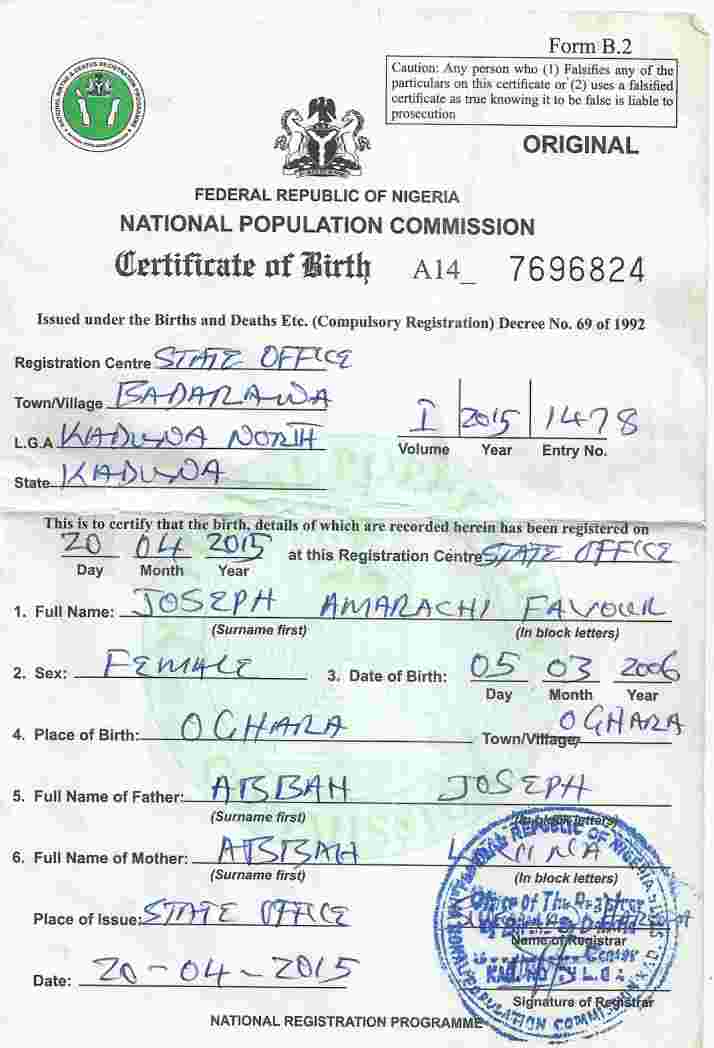 Form B.2
Caution: Any person who (1) Falsifies any of the
particulars on this certificate or (2) uses a falsified
certificate as true knowing it to be false is liable to
prosecution
ORIGINAL
FEDERAL REPUBLIC OF NIGERIA
NATIONAL POPULATION COMMISSION
Certificate of Birth A14_ 7696824
Issued under the Births and Deaths Etc. (Compulsory Registration) Decree No. 69 of 1992
Registration Centre STATE OFFICE
Town/Village BADARAWA
L.G.A KADUNA NORTH
State KADUNA
I 2015 1478
Volume Year Entry No.
This is to certify that the birth, details of which are recorded herein has been registered on
20 04 2015 at this Registration Centre STATE OFFICE
Day Month Year
1. Full Name: JOSEPH AMARACHI FAVOUR
(Surname first) (In block letters)
2. Sex: FEMALE 3. Date of Birth: 05 03 2006
Day Month Year
4. Place of Birth: OGHARA Town/Village OGHARA
5. Full Name of Father: ABBAH JOSEPH
(Surname first) (In block letters)
6. Full Name of Mother: ABBAH
(Surname first) (In block letters)
Place of Issue: STATE OFFICE
Office of The Registrar
Name of Registrar
Centre
L.G.A
Date: 20-04-2015
Signature of Registrar
NATIONAL REGISTRATION PROGRAMME